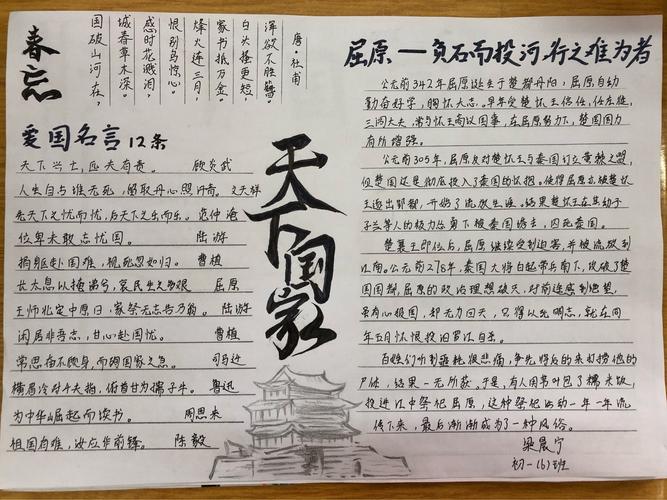 春忘
国破山河在,
城春草木深。
感时花溅泪,
恨别鸟惊心。
烽火连三月,
家书抵万金。
白头搔更短,
浑欲不胜簪。
唐·杜甫
爱国名言12条
天下兴亡,匹夫有责。 顾炎武
人生自古谁无死,留取丹心照汗青。文天祥
先天下之忧而忧,后天下之乐而乐。范仲淹
位卑未敢忘忧国。 陆游
捐躯赴国难,视死忽如归。 曹植
长太息以掩涕兮,哀民生之多艰 屈原
王师北定中原日,家祭无忘告乃翁。 陆游
闲居非吾志,甘心赴国忧。 曹植
常思奋不顾身,而殉国家之急。 司马迁
横眉冷对千夫指,俯首甘为孺子牛。 鲁迅
为中华崛起而读书。 周恩来
祖国有难,汝应作前锋。 陈毅
天下国家
屈原——负石而投河,行之难为者
公元前342年屈原诞生于楚郢丹阳,屈原自幼
勤奋好学,胸怀大志。早年受楚怀王信任,任左徒,
三闾大夫,常与怀王商议国事,在屈原努力下,楚国国力
有所增强。
公元前305年,屈原反对楚怀王与秦国订立黄棘之盟,
但楚国还是彻底投入了秦国的怀抱。使得屈原亦被楚怀
王逐出郢都,开始了流放生涯。结果楚怀王在其幼子
子兰等人的极力怂恿下被秦国诱去,囚死秦国。
楚襄王即位后,屈原继续受到迫害,并被流放到
江南。公元前278年,秦国大将白起带兵南下,攻破了楚
国国都,屈原的政治理想破灭,对前途感到绝望,
虽有心报国,却无力回天,只得以死明志,就在同
年五月怀恨投汨罗江自杀。
百姓们听到噩耗很悲痛,争先恐后的来打捞他的
尸体,结果一无所获。于是,有人用苇叶包了糯米饭,
投进江中祭祀屈原,这种祭祀活动一年一年流
传下来,最后渐渐成为了一种风俗。
梁晨宁
初一(6)班